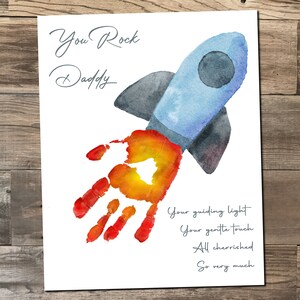 You Rock
Daddy
Your guiding light
Your gentle touch
All cherished
So very much